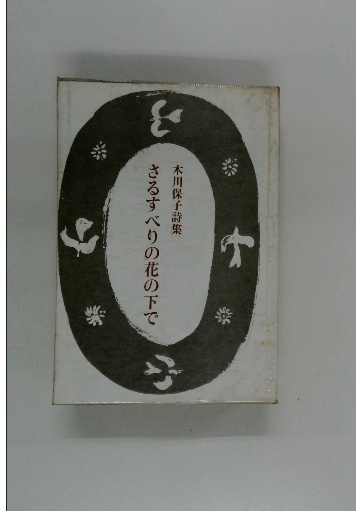 木川保子詩集
さるすべりの花の下で